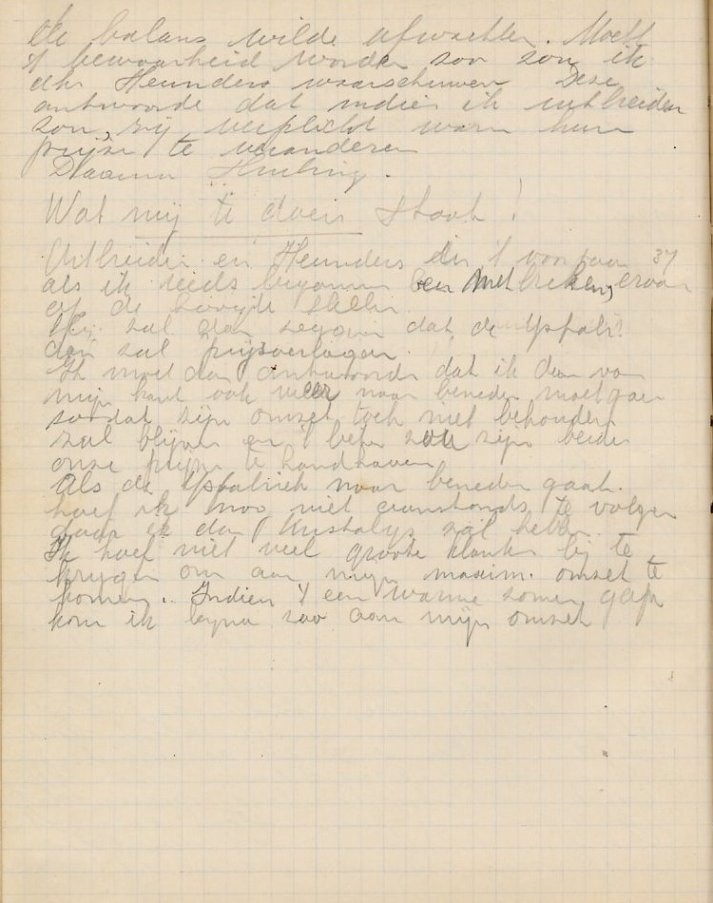 de balans wilde afwachten. Mocht
't bewaarheid worden zoo zou ik
dhr Heinders waarschuwen Deze
antwoorde dat indien ik uitbreiden
zou, zij verplicht waren hun
prijze te veranderen
Daarna
Wat mij te doen staat!
Uitbreiden en Heinders din 't voorjaar 37
als ik reeds begonnen ben met ervan
op de hoogte stellen
Hij zal dan zeggen dat de Ijsfabr.
dan zal prijsverlagen.
Ik moet dan antwoorden dat ik dan van
mijn kant ook weer naar beneden moet gaan
zoodat zijn omzet toch niet behouden
zal blijven en 't beter zou zijn beiden
onze prijzen te handhaven
Als de Ijsfabriek naar beneden gaat.
hoef ik nog niet te volgen
daar ik dan Kristalijs zal hebben
Ik hoef niet veel groote klanten bij te
krijgen om aan mijn maxim. omzet te
komen. Indien 't een warme zomer
kom ik bijna zoo aan mijn omzet